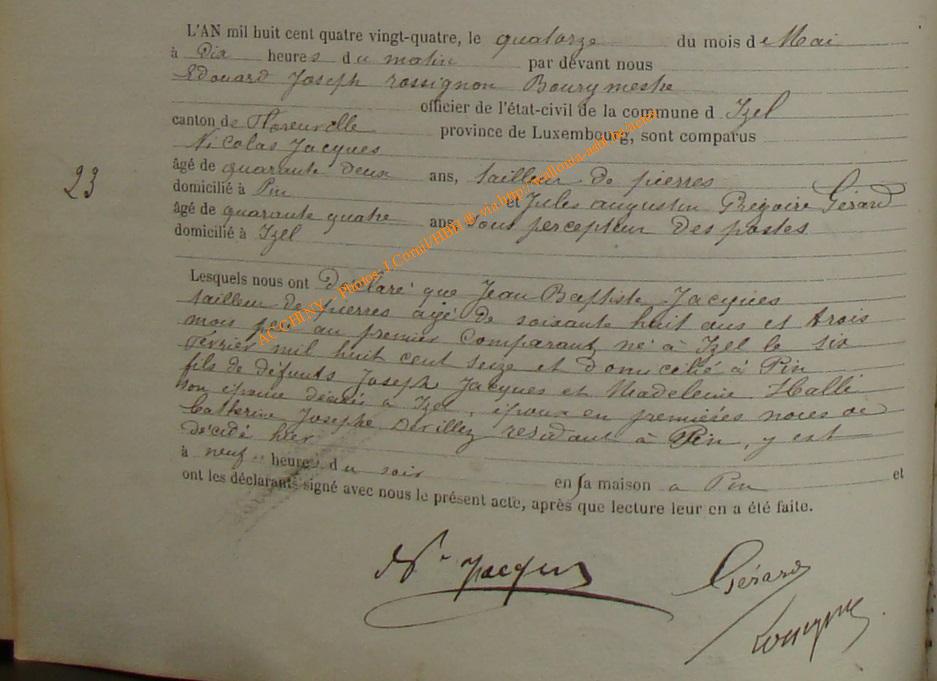 L'AN mil huit cent quatre vingt-quatre, le quatorze du mois de Mai
à Dix heures du matin par devant nous
Edouard Joseph rossignon Bourgmestre
officier de l'état-civil de la commune d Izel
canton de Florenville province de Luxembourg, sont comparus
Nicolas Jacques
âgé de quarante deux ans, tailleur de pierres
domicilié à Pin et Jules augustin Grégoire Gérard
âgé de quarante quatre ans sous percepteur des postes
domicilié à Izel
23
Lesquels nous ont Déclaré que Jean Baptiste Jacques
tailleur de pierres âgé de soixante huit ans et trois
mois père au premier Comparant, né à Izel le six
février mil huit cent seize et domicilié à Pin
fils de défunts Joseph Jacques et Madeleine Halli
son épouse décédés à Izel, époux en premières noces de
Catherine Josephe Devillez résidant à Pin, y est
décédé hier
à neuf heures du soir en sa maison à Pin et
ont les déclarants signé avec nous le présent acte, après que lecture leur en a été faite.
Jacques Gérard
Rossignon
ACCHINY - Photos J.Cornil/HBH @ via http://